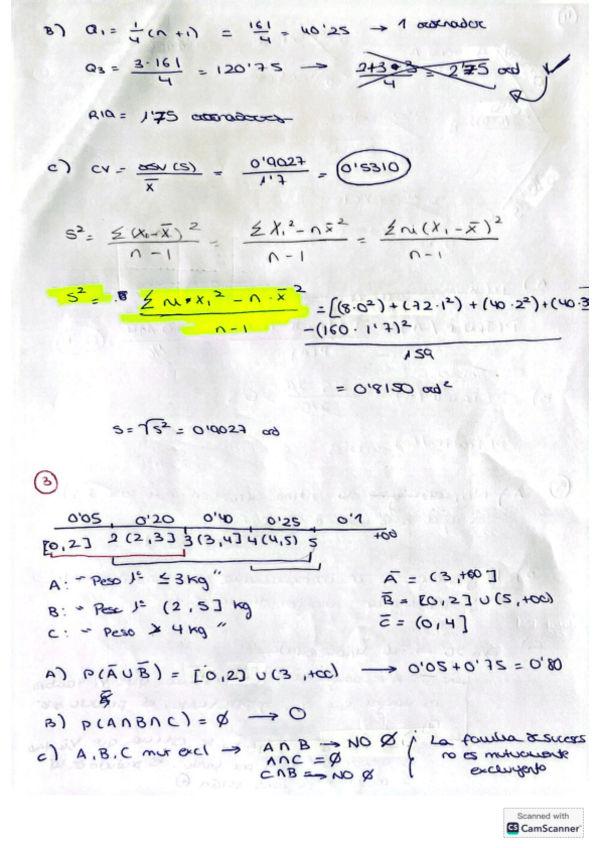 B) Q₁ = 1/4 (n + 1) = 161/4 = 40'25 → 1 ordenador
Q3 = 3·161/4 = 120'75 → 2+3·3/4 = 2'75 ord
RIQ = 1'75 ordenadores
C) CV = desv (S)/x̄ = 0'9027/1'7 = 0'5310
S² = Σ(Xi - x̄)²/n - 1 = ΣXi² - nx̄²/n - 1 = Σni(Xi - x̄)²/n - 1
S² = Σ ni • Xi² - n · x̄²/n-1 = [(8·0²) + (72·1²) + (40·2²) + (40·3
-(160 · 1'7)²
159
= 0'8150 ord²
S = √S² = 0'9027 ord
3
0'05 0'20 0'40 0'25 0'1
[0,2] 2 (2,3] 3 (3,4] 4 (4,5) 5 +∞
A: "Peso 1º ≤ 3 kg" Ā = (3,+∞]
B: "Peso 1º (2,5] kg B̄ = [0,2] ∪ (5,+∞)
C: "Peso > 4 kg" C̄ = (0,4]
A) P(Ā ∪ B̄) = [0,2] ∪ (3,+∞) → 0'05 + 0'75 = 0'80
B) P(A∩B∩C) = Ø → 0
C) A, B, C mut excl → A∩B → NO Ø La familia de suceso
A∩C = Ø no es mutuamente
C∩B = → NO Ø excluyente
Scanned with
CS CamScanner